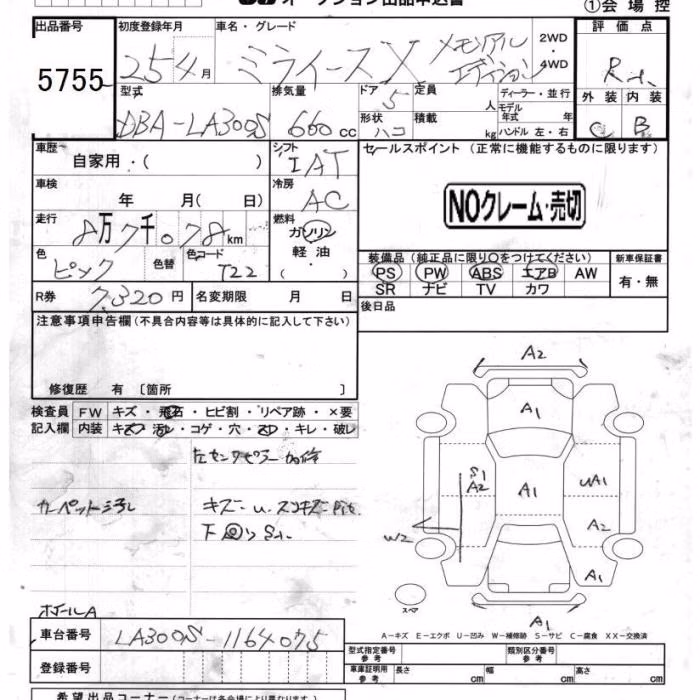 オークション出品申込書
①会場控
出品番号 初度登録年月 車名・グレード 2WD・4WD 評価点
5755 25 4月 ミライースX メモリアルエディション R
型式 排気量 ドア 5 定員 人 ディーラー・並行 外装 内装
DBA-LA300S 660cc 形状 ハコ 積載 kg モデル年式 年 ハンドル 左・右 C B
車歴 自家用・( ) シフト IAT セールスポイント (正常に機能するものに限ります)
車検 年 月( 日) 冷房 AC NOクレーム・売切
走行 8万7千078km 燃料 ガソリン 軽油 ・( )
色 ピンク 色替 色コード T22
装備品 (純正品に限り○をつけてください) 新車保証書
PS PW ABS エアB AW 有・無
SR ナビ TV カワ
R券 7,320円 名変期限 月 日 後日品
注意事項申告欄 (不具合内容等は具体的に記入して下さい)
修復歴 有 〔箇所 〕
検査員 FW キズ・飛石・ヒビ割・リペア跡・×要
記入欄 内装 キズ・汚レ・コゲ・穴・スレ・キレ・破レ
左センターピラー加修
カーペット汚れ キズ・U・スリキズ
下回りS
ホイールA
A2
A1
S1
A2 A1 UA1
A2
W2
A1
スペア
A1
A-キズ E-エクボ U-凹み W-補修跡 S-サビ C-腐食 XX-交換済
車台番号 LA300S-1164075
登録番号
型式指定番号 参考 類別区分番号 参考
車庫証明用 参考 長さ cm 幅 cm 高さ cm
希望出品コーナー (コーナーは各会場により異なります)